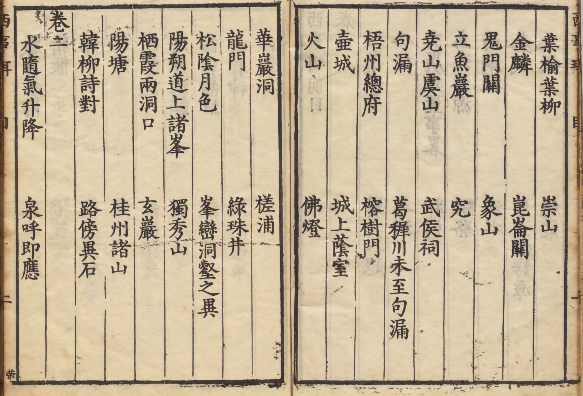 葉榆葉柳　崇山
金麟　崑崙關
鬼門關　象山
立魚巖　究
尭山虞山　武侯祠
句漏　葛穉川未至句漏
梧州總府　榕樹門
壺城　城上蔭室
火山　佛燈
華巖洞　槎浦
龍門　綠珠井
松陰月色　峯巒洞壑之異
陽朔道上諸峯　獨秀山
栖霞兩洞口　玄巖
陽塘　桂州諸山
韓柳詩對　路傍異石
卷二
水隨氣升降　泉呼即應